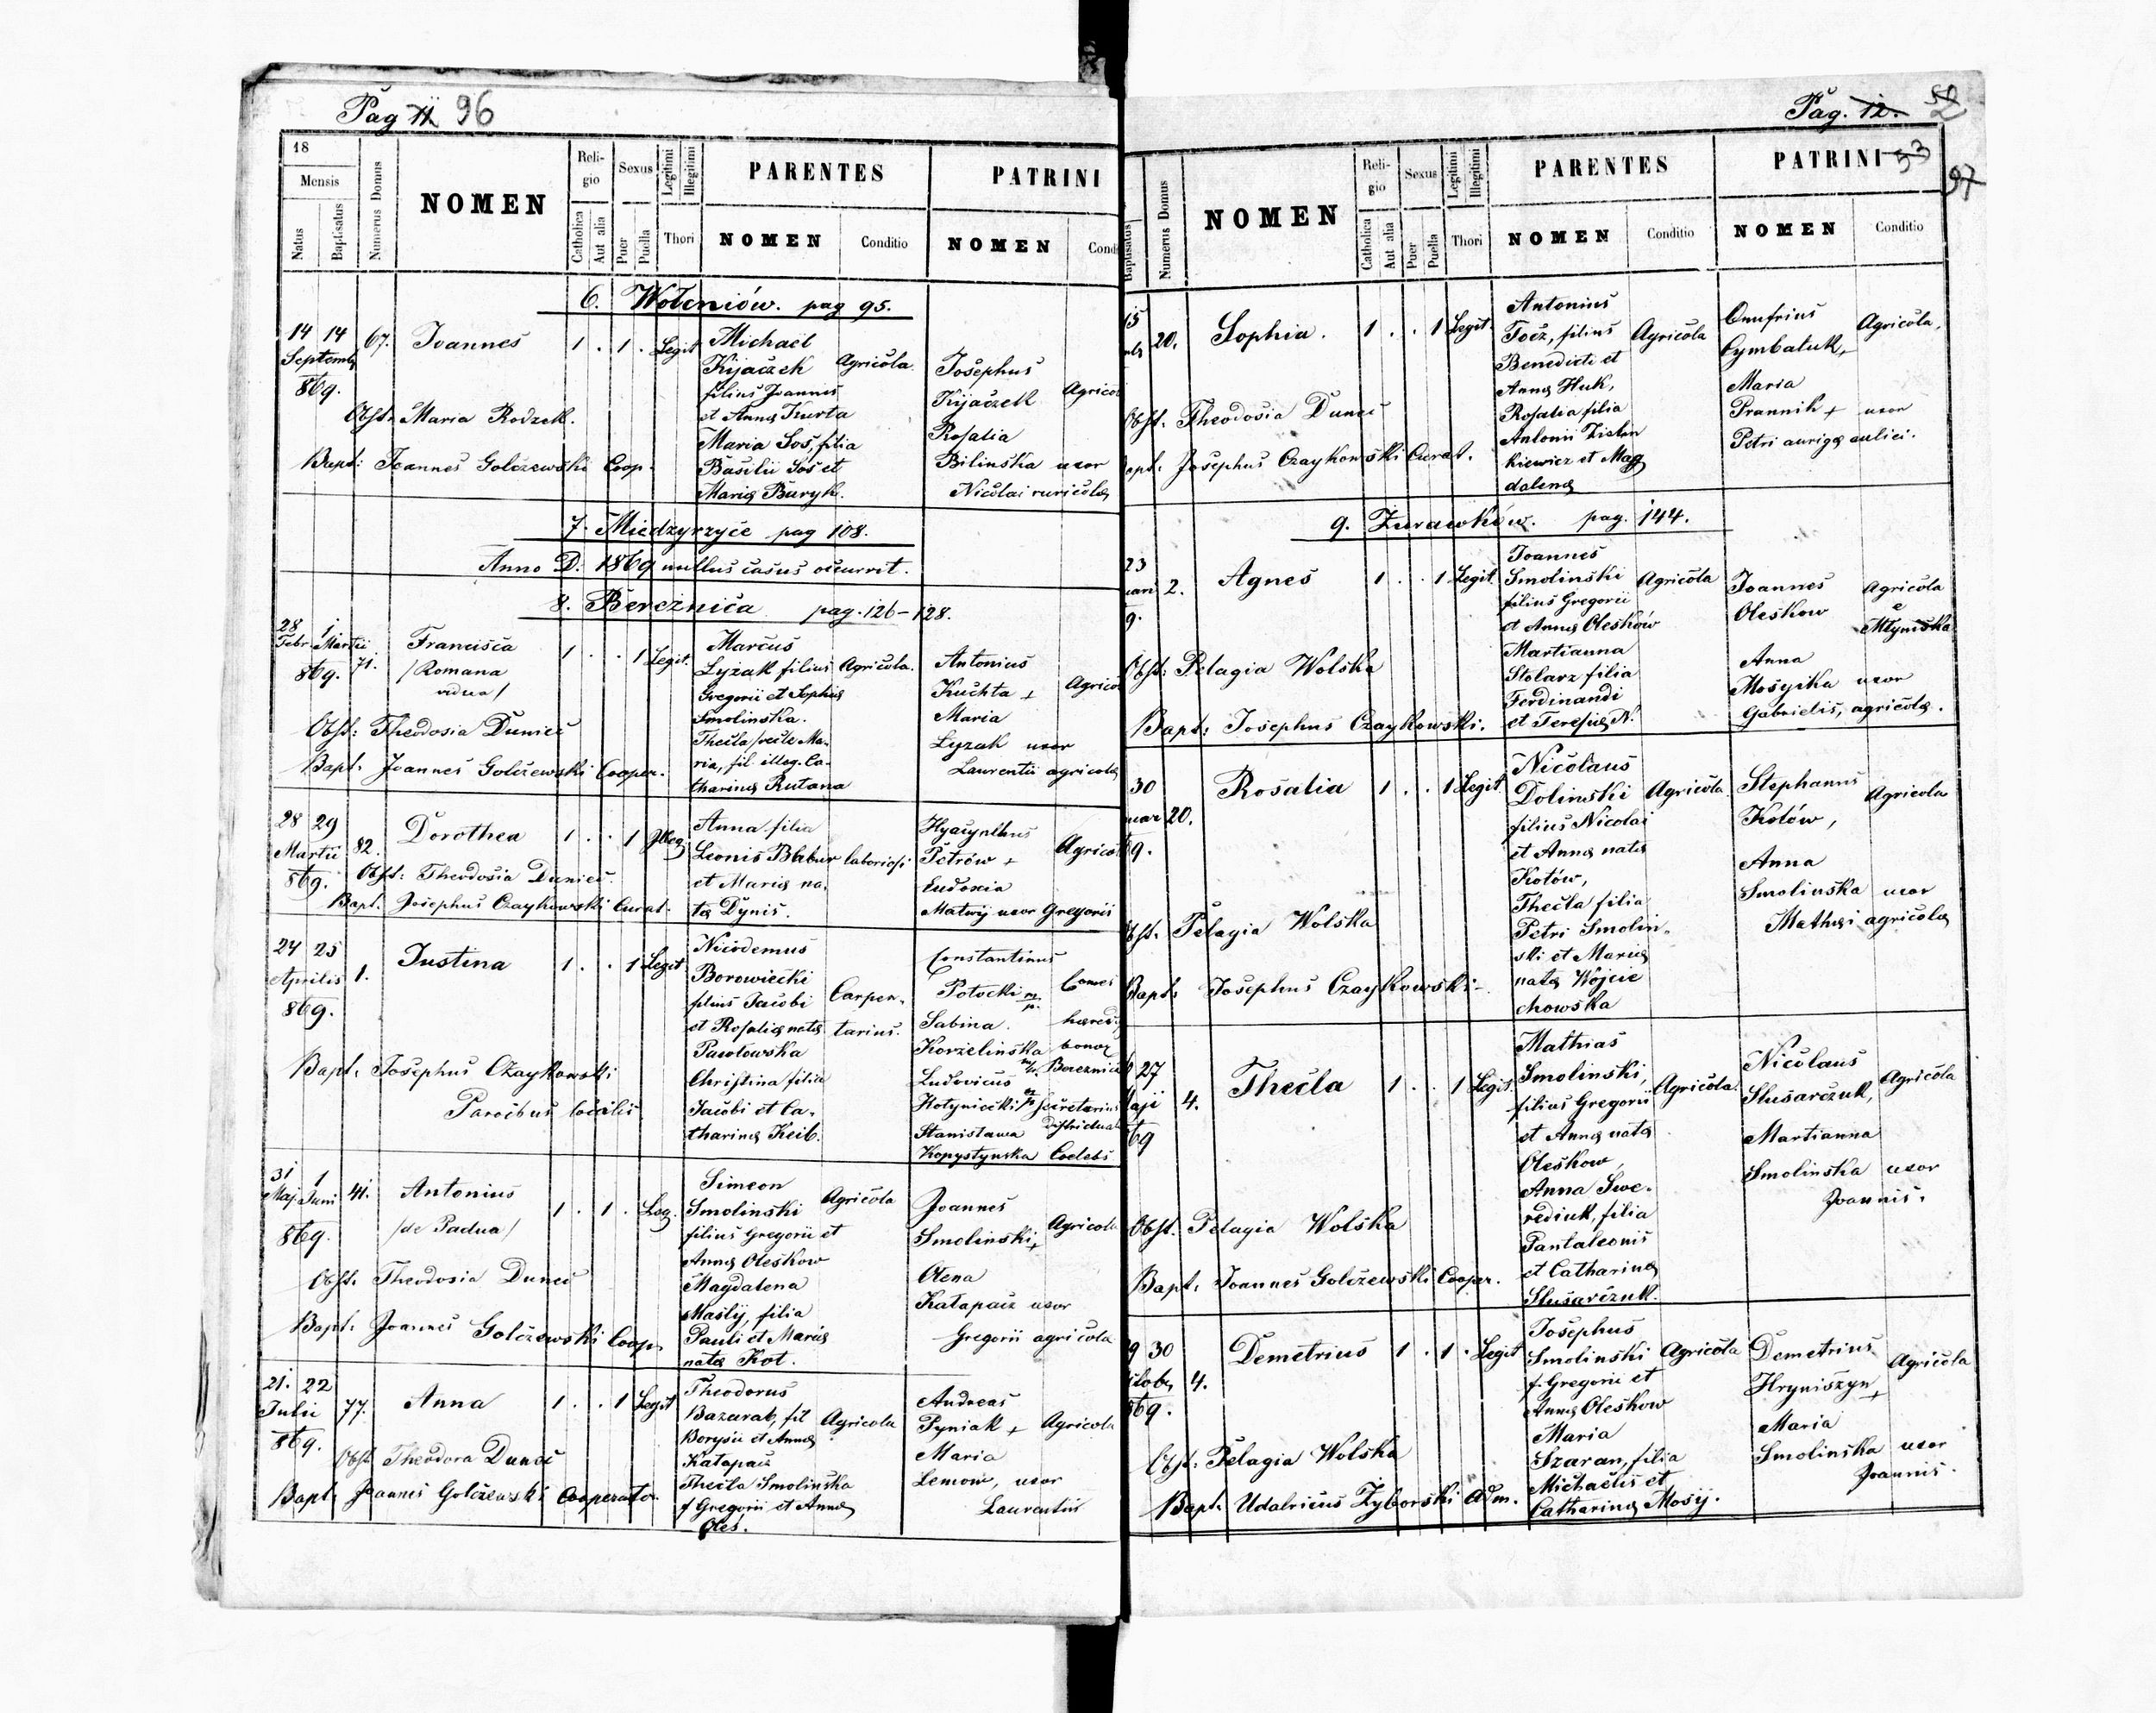 Pag 11 96
18
Mensis
Natus
Baptisatus
Numerus Domus
NOMEN
Religio
Catholica
Aut alia
Sexus
Puer
Puella
Legitimi
Illegitimi
Thori
PARENTES
NOMEN
Conditio
PATRINI
NOMEN
Condi
6. Wołeniów. pag 95.
14 14 67. Joannes 1 . 1 . Legit Michael
Septemb Kijaczek Agricola. Josephus
869. filius Joannis Kijaczek Agricol
Obst. Maria Rodzek. et Annae Kurta Rosalia
Maria Sos, filia Bilinska uxor
Bapt: Joannes Golczewski Coop. Basilii Sos et Nicolai ruricolae
Mariae Buryk.
7. Miedzyrzyce pag 108.
Anno D. 1869 nullus casus occurrit.
8. Bereznica pag. 126-128.
28 1 Francisca 1 . . 1 Legit. Marcus
Febr Martii 71. /Romana Lyzak filius Agricola. Antonius
869. vidua/ Gregorii et Sophiae Kuchta + Agrico
Smolinska. Maria
Obst: Theodosia Duniec Thecla /recte Ma- Lyzak uxor
ria, fil. illeg. Ca- Laurentii agricolae
Bapt. Joannes Golczewski Cooper. tharinae Rutana
28 29 Dorothea 1 . . 1 Illeg Anna filia Hyacynthus
Martii 82. Leonis Babur laboriosi Petrów + Agricol
869. Obst: Theodosia Duniec. et Mariae na- Eudoxia
Bapt. Josephus Czaykowski Curat. tae Dynis. Matwij uxor Gregorii
24 25 Justina 1 . . 1 Legit Nicodemus Constantinus
Aprilis 1. Borowiecki Potocki mp. Comes
869. filius Jacobi Carpen- Sabina haeres
et Rosaliae natae tarius. Korzelinska bonor
Pawłowska Bereznica
Bapt. Josephus Czaykowski Christina filia Ludovicus
Parochus localis Jacobi et Ca- Hotyniecki Secretarius
tharinae Keib. Stanisława districtual
Kopystynska Coelebs
31 1 41. Antonius 1 . 1 . Leg. Simeon
Maj Juni /de Padua/ Smolinski Agricola Joannes
869. filius Gregorii et Smolinski + Agricola
Annae Oleskow
Obst. Theodosia Duniec Magdalena Olena
Masly, filia Katapacz uxor
Bapt. Joannes Golczewski Coop. Pauli et Mariae Gregorii agricola
natae Kot.
21. 22 77. Anna 1 . . 1 Legit Theodorus Andreas
Julii Bazarak, fil Agricola Pyniak + Agricola
869. Borysii et Annae Maria
Obst Theodora Dunec Katapacz Lemow, uxor
Bapt. Joannes Golczewski Cooperator Thecla Smolinska Laurentii
f Gregorii et Annae
Oles.
Pag. 12. 52
53
97
Baptisatus
Numerus Domus
NOMEN
Religio
Catholica
Aut alia
Sexus
Puer
Puella
Legitimi
Illegitimi
Thori
PARENTES
NOMEN
Conditio
PATRINI
NOMEN
Conditio
15 20. Sophia. 1 . . 1 Legit. Antonius Onufrius
Tocz, filius Agricola Cymbaluk, Agricola,
Benedicti et Maria
Annae Huk, Prannik + uxor
Obst. Theodosia Dunec Rosalia filia Petri aurigae aulici.
Antonii Zisten
Bapt. Josephus Czaykowski Curat. kiewicz et Mag
dalenae
9. Zurawków. pag. 144.
23 2. Agnes 1 . . 1 Legit. Joannes
uari Smolinski Agricola Joannes Agricola
9. filius Gregorii Oleskow e
et Annae Oleskow Młyniska
Obst: Pelagia Wolska Martianna Anna
Stolarz filia Mosyika uxor
Ferdinandi Gabrielis, agricolae.
Bapt: Josephus Czaykowski. et Teresiae N.
30 Rosalia 1 . . 1 Legit Nicolaus Stephanus
uar 20. Dolinski Agricola Kotów, Agricola
69. filius Nicolai
et Annae natae Anna
Kotów, Smolinska uxor
Thecla filia Mathaei agricolae
Obst. Pelagia Wolska Petri Smolin-
ski et Mariae
Bapt: Josephus Czaykowski natae Wojcie
chowska
27 Thecla 1 . . 1 Legit. Mathias Nicolaus
Maji 4. Smolinski, Agricola. Slusarczuk, Agricola
69 filius Gregorii
et Annae natae Martianna
Oleskow, Smolinska uxor
Anna Swe- Joannis.
Obst. Pelagia Wolska rediuk, filia
Pantaleonis
Bapt. Joannes Golczewski Cooper. et Catharinae
Slusarczuk.
9 30 Demetrius 1 . 1 . Legit Josephus
ctobr 4. Smolinski Agricola Demetrius Agricola
869. f. Gregorii et Hryniszyn +
Annae Oleskow Maria
Obst. Pelagia Wolska Maria Smolinska uxor
Szaran, filia Joannis.
Bapt. Udalricus Zyborski Adm. Michaelis et
Catharinae Mosij.